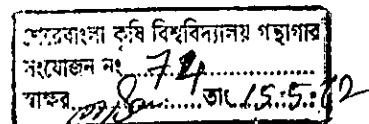 শেরেবাংলা কৃষি বিশ্ববিদ্যালয় গন্থাগার
সংযোজন নং....74..........
স্বাক্ষর..............তাং 15.5.12